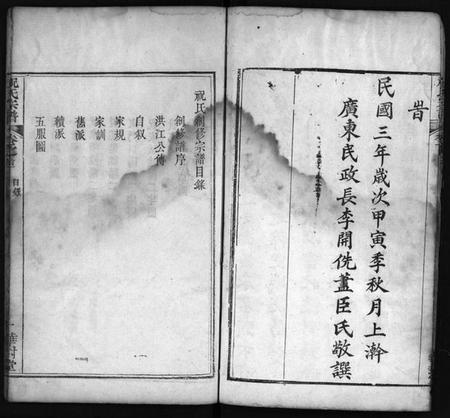 昔
民國三年歲次甲寅季秋月上澣
廣東民政長李開侁藎臣氏敬譔
祝氏創修宗譜目錄
創修譜序
洪江公傳
自叙
家規
家訓
舊派
續派
五服圖
祝氏宗譜
目錄